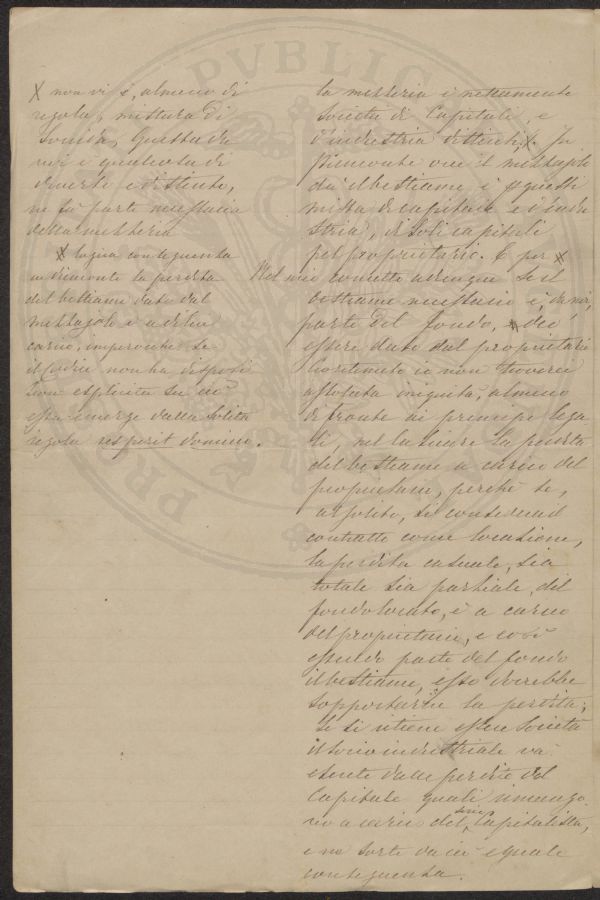 X non vi è, almeno di
regola, mistura di
soccida, questa da
noi è qualcosa di
diverso e distinto,
ne fa parte necessaria
della mezzeria
X logica conseguenza
in Piemonte la perdita
del bestiame dato dal
mezzajolo è a di lui
carico, imperocchè se
il Codice non ha disposi
zione esplicita su ciò
essa emerge dalla solita
regola res perit domino.
la mezzeria è nettamente
società di Capitali, e
d'industria distinti, X. In
Piemonte ove il mezzajolo
dà il bestiame è quella
mista di capitale e d'indu
stria, di soli capitali
pel proprietario. E per X
Nel mio concetto adunque se il
bestiame necessario è, da noi,
parte del fondo, dee
essere dato dal proprietario
io non troverei
assoluta iniquità, almeno
di fronte ai principi lega
li, nel lasciare la perdita
del bestiame a carico del
proprietario, perchè se,
si considera il
contratto come locazione,
la perdita casuale, sia
totale sia parziale, del
fondo locato, è a carico
del proprietario, e così
essendo parte del fondo
il bestiame, esso dovrebbe
sopportarne la perdita;
se si ritiene essere società
il socio industriale va
esente dalle perdite del
Capitale quali rimango
no a carico del socio Capitalista,
e ne sorte da ciò eguale
conseguenza.
PVBLICA
PRO